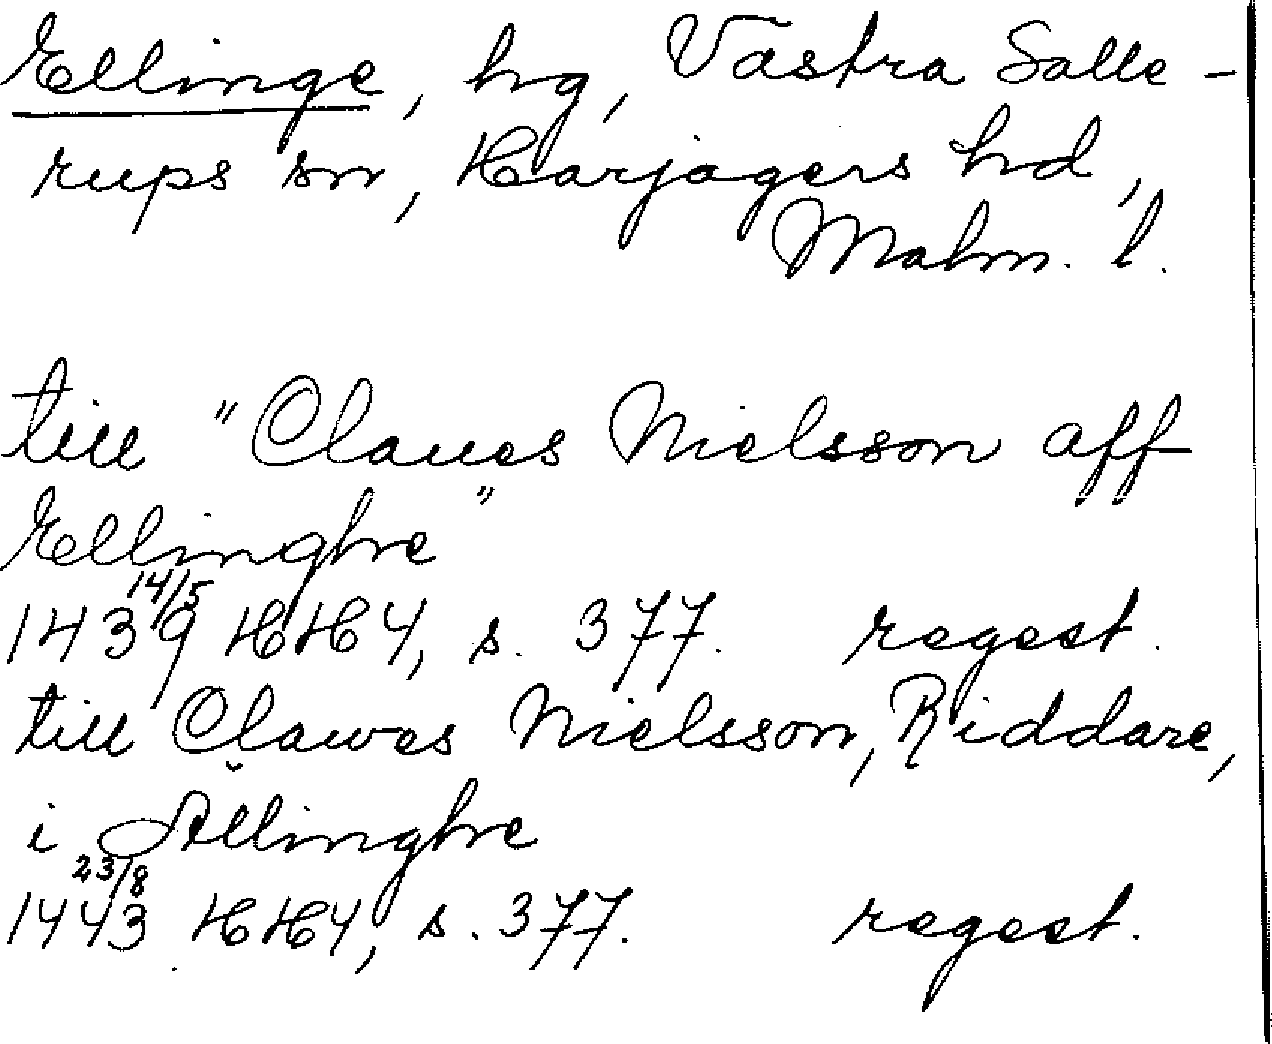 Ellinge, hg, Västra Salle-
rups sn, Harjagers hd,
Malm. l.
till "Claues Nielsson aff
Ellinghe"
1439 14/5 HH4, s. 377. regest.
till Clawes Nielsson, Riddare,
i Ællinghe
1443 23/8 HH4, s. 377. regest.